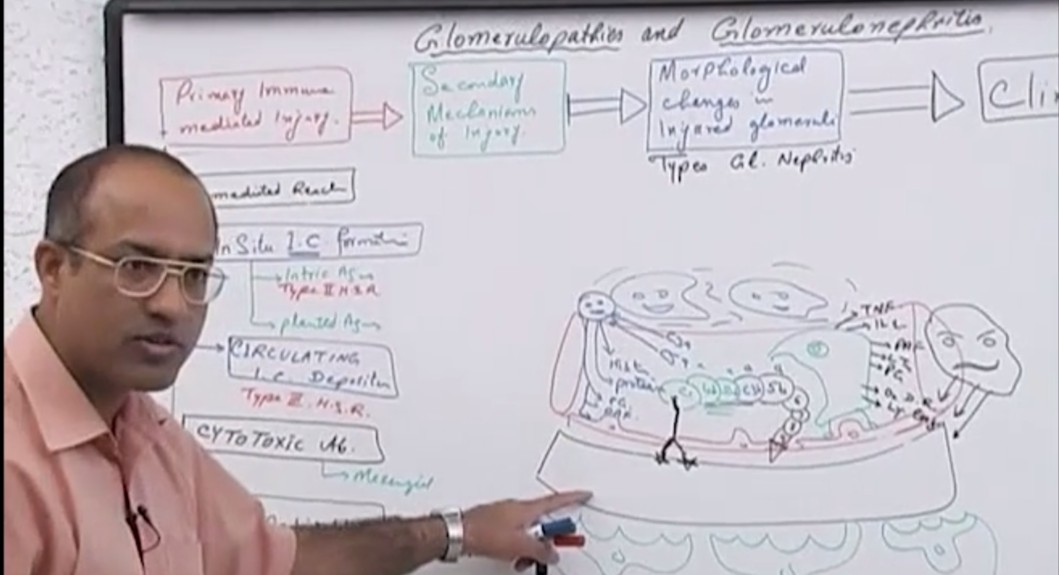 Glomerulopathies and Glomerulonephritis.
Primary Immune
mediated Injury.
Secondary
Mechanisms
of Injury.
Morphological
changes in
Injured glomeruli
Types Gl. Nephritis
Cli
mediated React
In Situ I.C. formation
Intric Ags
Type II H.S.R
planted Ags
CIRCULATING
I.C. Deposition
Type III H.S.R.
CYTOTOXIC Ab.
Mesangial
TNF
IL 1
Hist.
protein
PG
PAF
PG